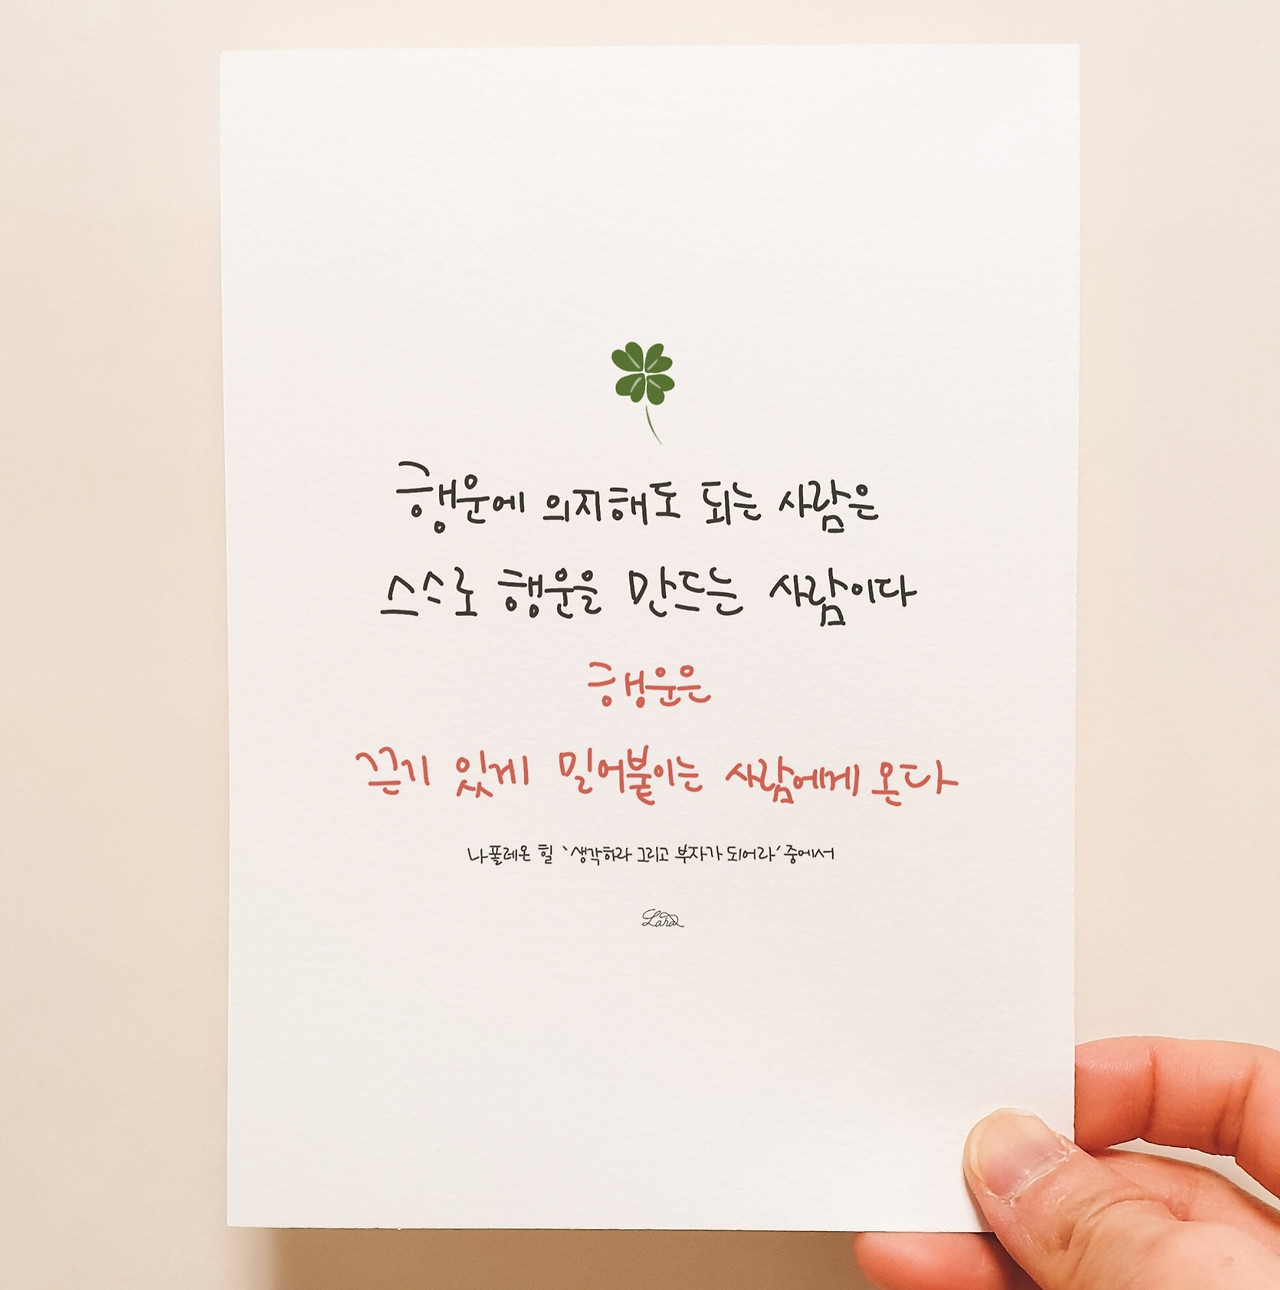 행운에 의지해도 되는 사람은
스스로 행운을 만드는 사람이다
행운은
끈기 있게 밀어붙이는 사람에게 온다
나폴레온 힐 '생각하라 그리고 부자가 되어라' 중에서
Lara